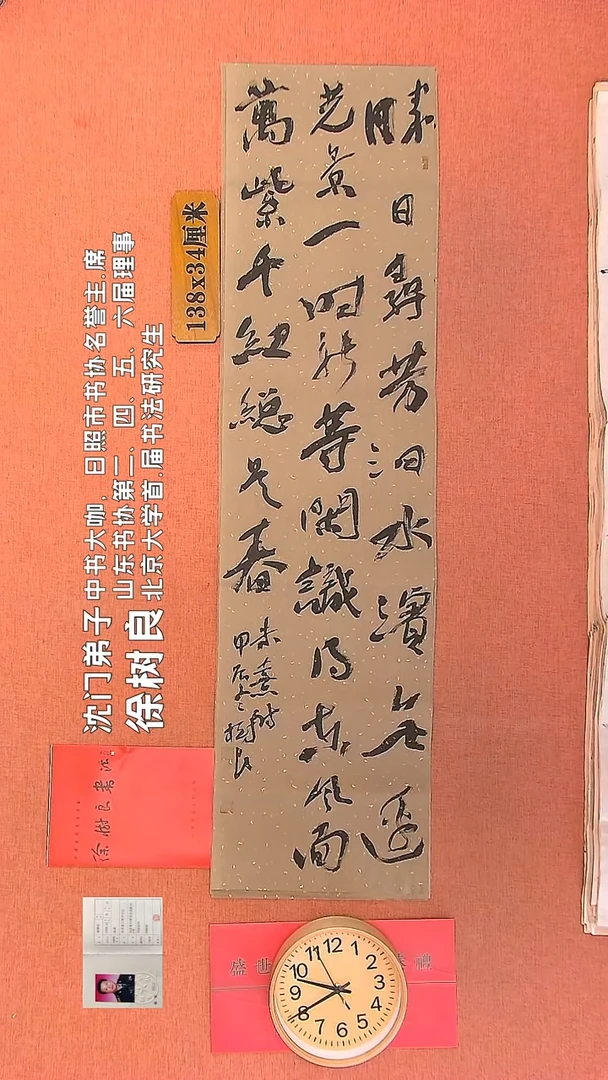 勝日尋芳泗水濱無邊
光景一時新等閑識得東風面
萬紫千紅總是春
朱熹詩
甲辰
樹良
138x34厘米
沈门弟子 中书大咖,日照市书协名誉主.席
山东书协第二、四、五、六届理事
徐树良 北京大学首.届书法研究生
徐樹良書法
盛世
12
1
2
3
4
5
6
7
8
9
10
11